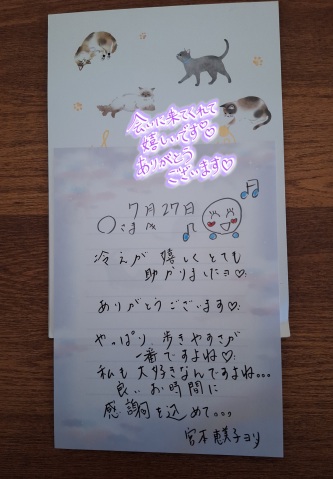 会いに来てくれて
嬉しいです♡
ありがとう
ございます♡
7月27日
〇さまへ
冷えが嬉しくとても
助かりましたヨ♡
ありがとうございます♡
やっぱり歩きやすさが
一番ですよね♡
私も大好きなんですよね...
良いお時間に
感謝を込めて...
宮本恵美子ヨリ